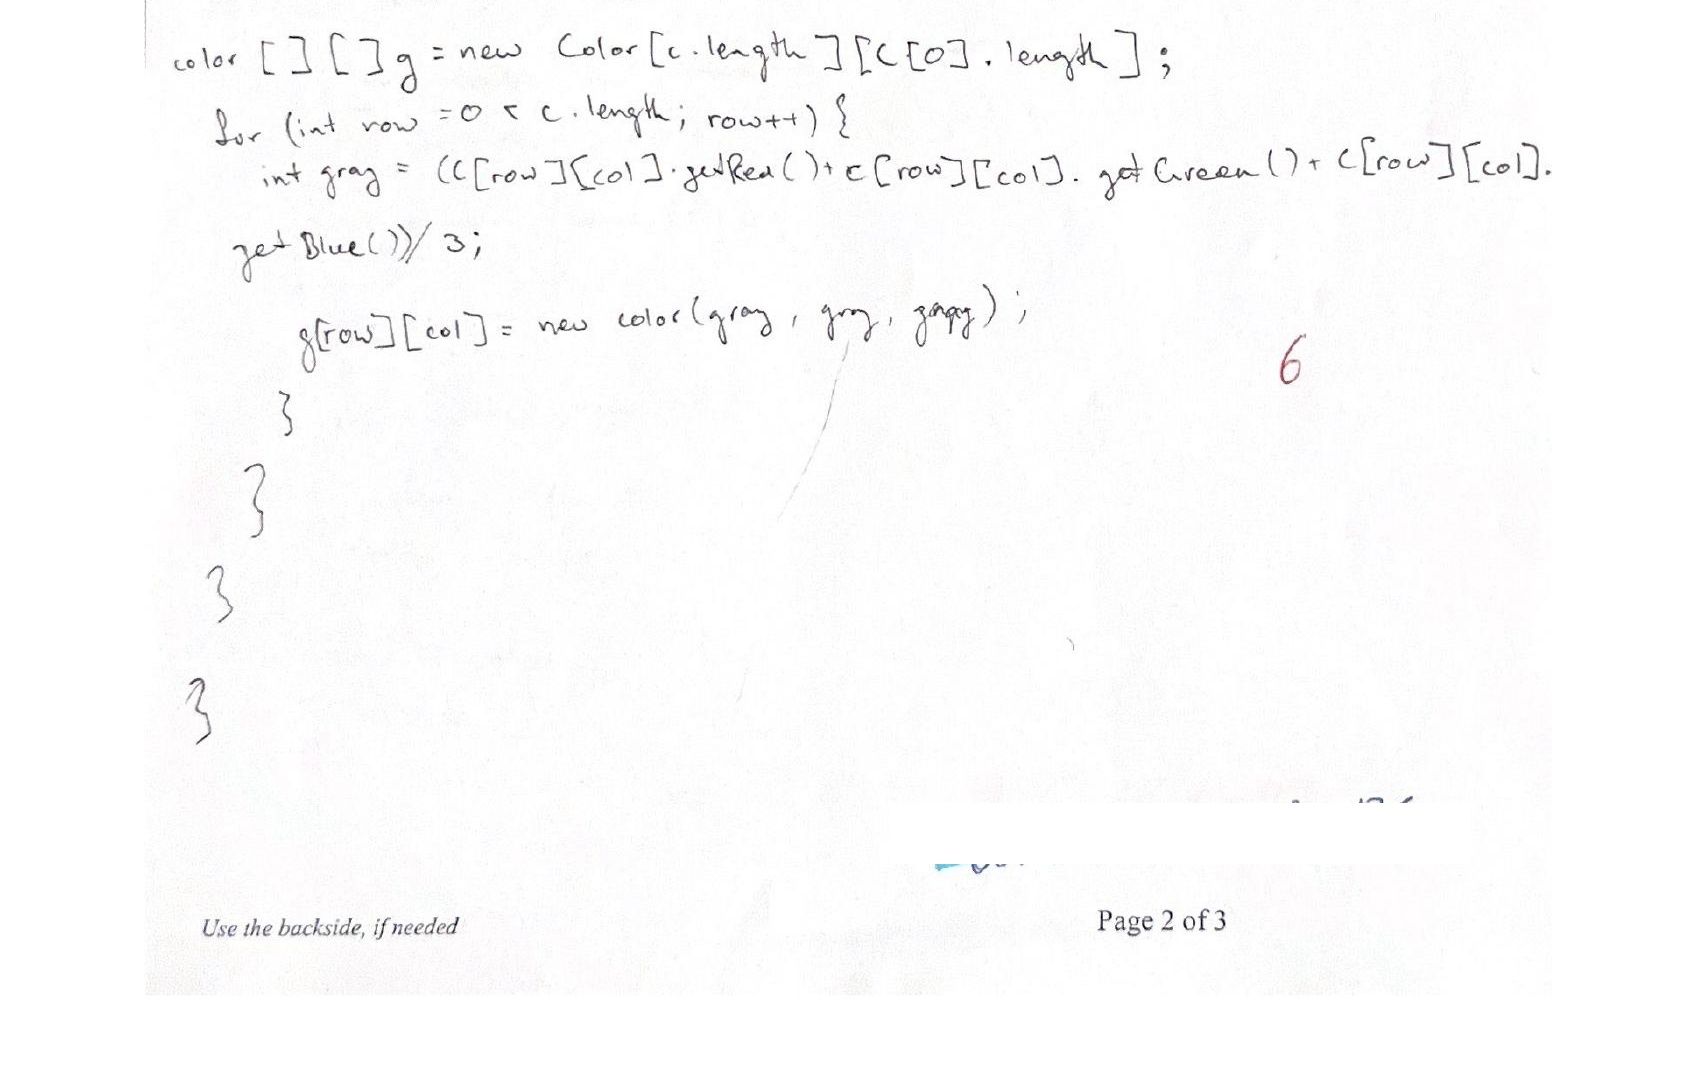 color [ ] [ ] g = new Color [c.length] [C [0] . length] ;
for (int row = 0 < c.length; row++) {
int gray = (C [row] [col] . getRed () + c [row] [col] . get Green () + C [row] [col] .
get Blue ()) / 3 ;
g[row] [col] = new color (gray , gray , gray) ;
6
}
}
}
}
Use the backside, if needed
Page 2 of 3